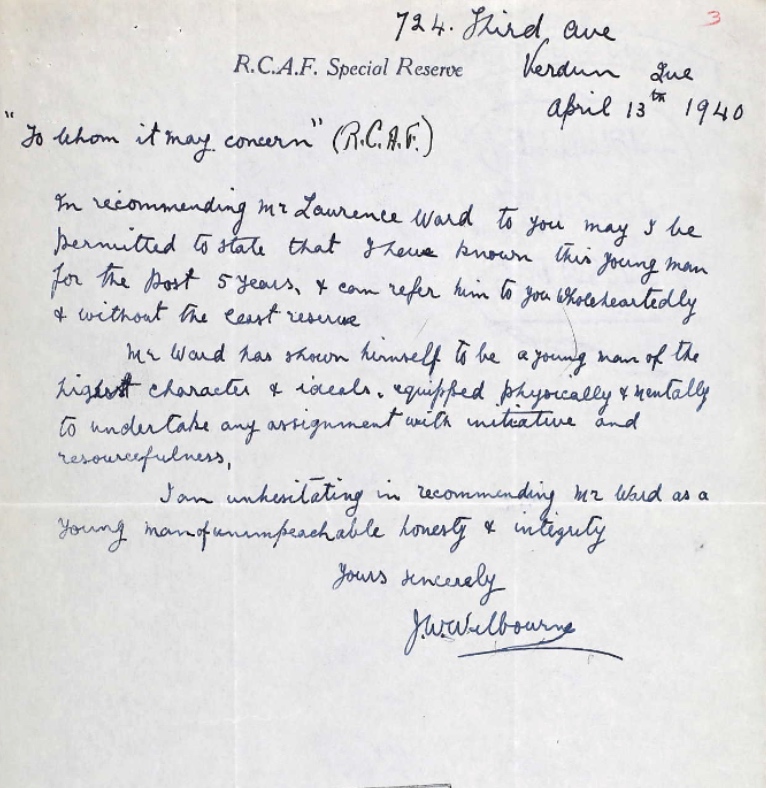 3
724. Third Ave
R.C.A.F. Special Reserve
Verdun Que
April 13th 1940
"To whom it may concern" (R.C.A.F.)
In recommending Mr Lawrence Ward to you may I be
permitted to state that I have known this young man
for the past 5 years, & can refer him to you wholeheartedly
& without the least reserve
Mr Ward has shown himself to be a young man of the
highest character & ideals. equipped physically & mentally
to undertake any assignment with initiative and
resourcefulness,
I am unhesitating in recommending Mr Ward as a
young man of unimpeachable honesty & integrity
Yours sincerely
J.W.Welbourne